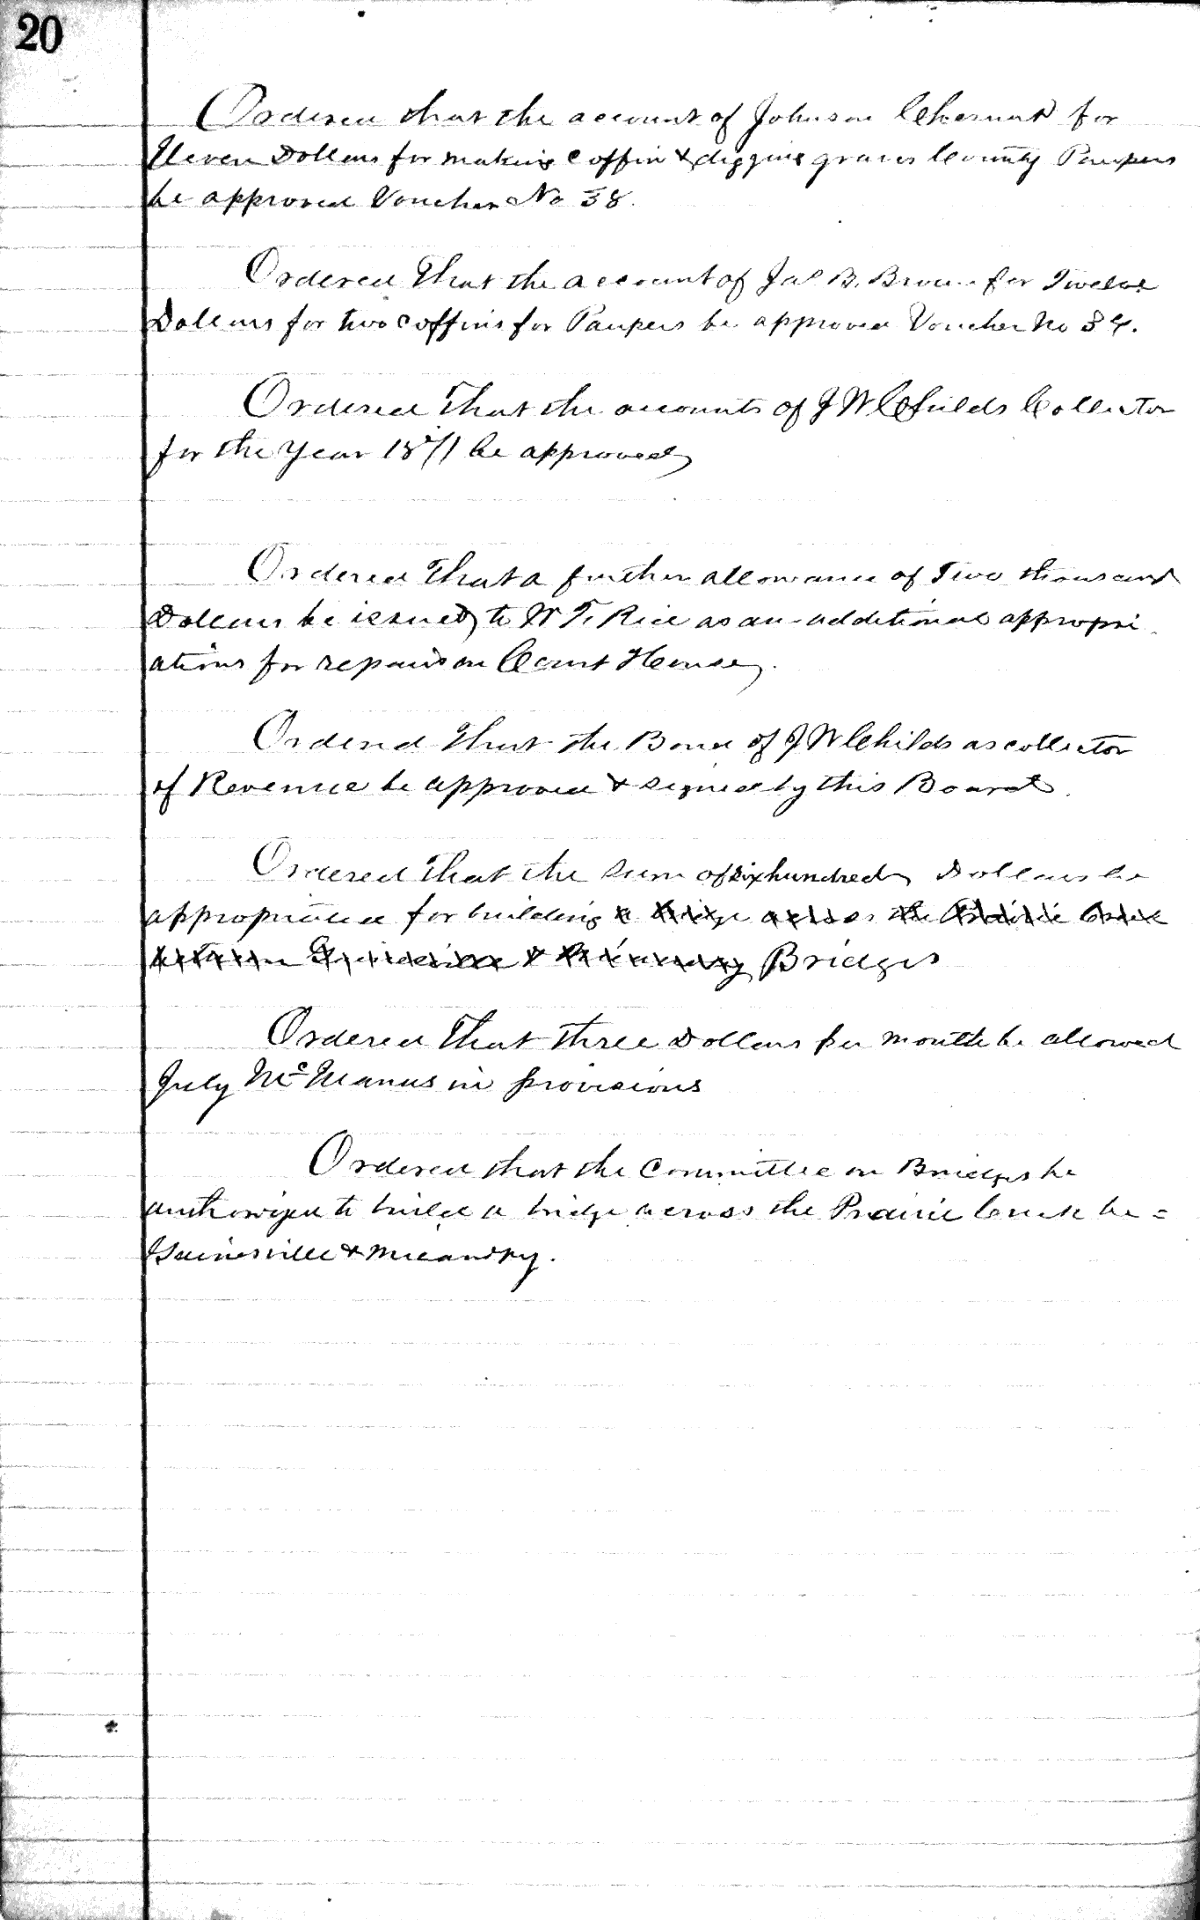 20
Ordered that the account of Johnson Chesnut for
Eleven Dollars for making coffin & digging graves County Paupers
be approved Voucher No 38.
Ordered That the account of Jas B. Brown for Twelve
Dollars for two coffins for Paupers be approved Voucher No 39.
Ordered That the accounts of J W Childs Collector
for the Year 1871 be approved
Ordered That a further allowance of Two thousand
Dollars be issued to W F. Rice as an additional appropri
ations for repairs on Court House.
Ordered That the Bond of J W Childs as collector
of Revenue be approved & signed by this Board.
Ordered That the sum of six hundred Dollars be
appropriated for building a bridge across the Prairie Creek
between Gainesville & Micanopy Bridges
Ordered That three Dollars per month be allowed
July McManus in provisions
Ordered that the Committee on Bridges be
authorized to build a bridge across the Prairie Creek be=
Gainesville & Micanopy.